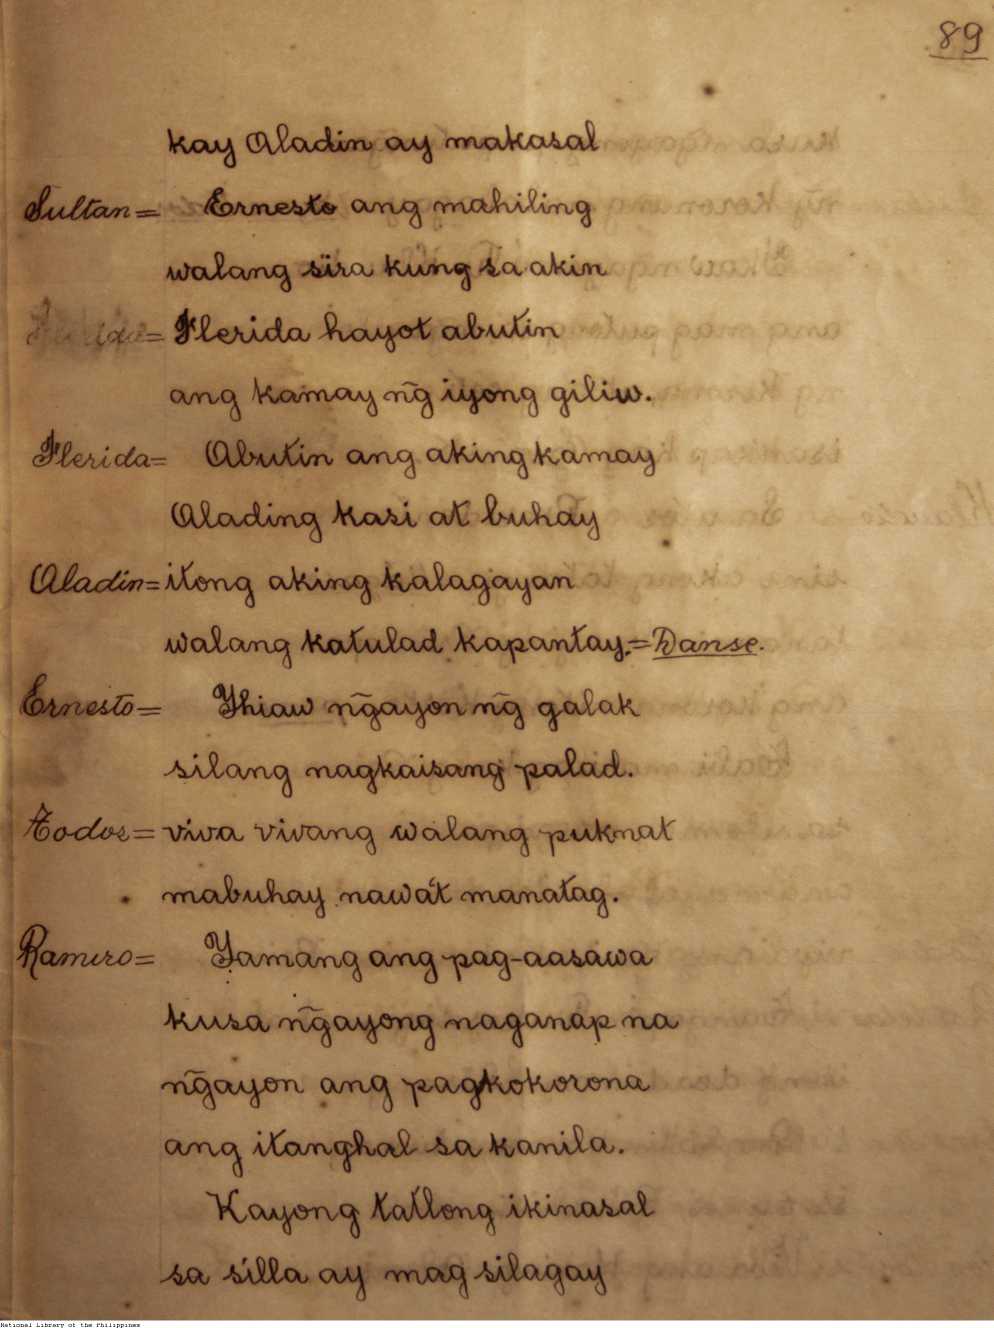 89
kay Aladin ay makasal
Sultan= Ernesto ang mahiling
walang sira kung sa akin
Flerida hayot abutin
ang kamay ng̃ iyong giliw.
Flerida= Abutin ang aking kamay
Alading kasi at buhay
Aladin= itong aking kalagayan
walang katulad kapantay.=Danse.
Ernesto= Yhiaw ng̃ayon ng̃ galak
silang nagkaisang palad.
Todos= viva vivang walang puknat
mabuhay nawa't manatag.
Ramiro= Yamang ang pag-aasawa
kusa ng̃ayong naganap na
ng̃ayon ang pagkokorona
ang itanghal sa kanila.
Kayong tatlong ikinasal
sa silla ay mag silagay
National Library of the Philippines